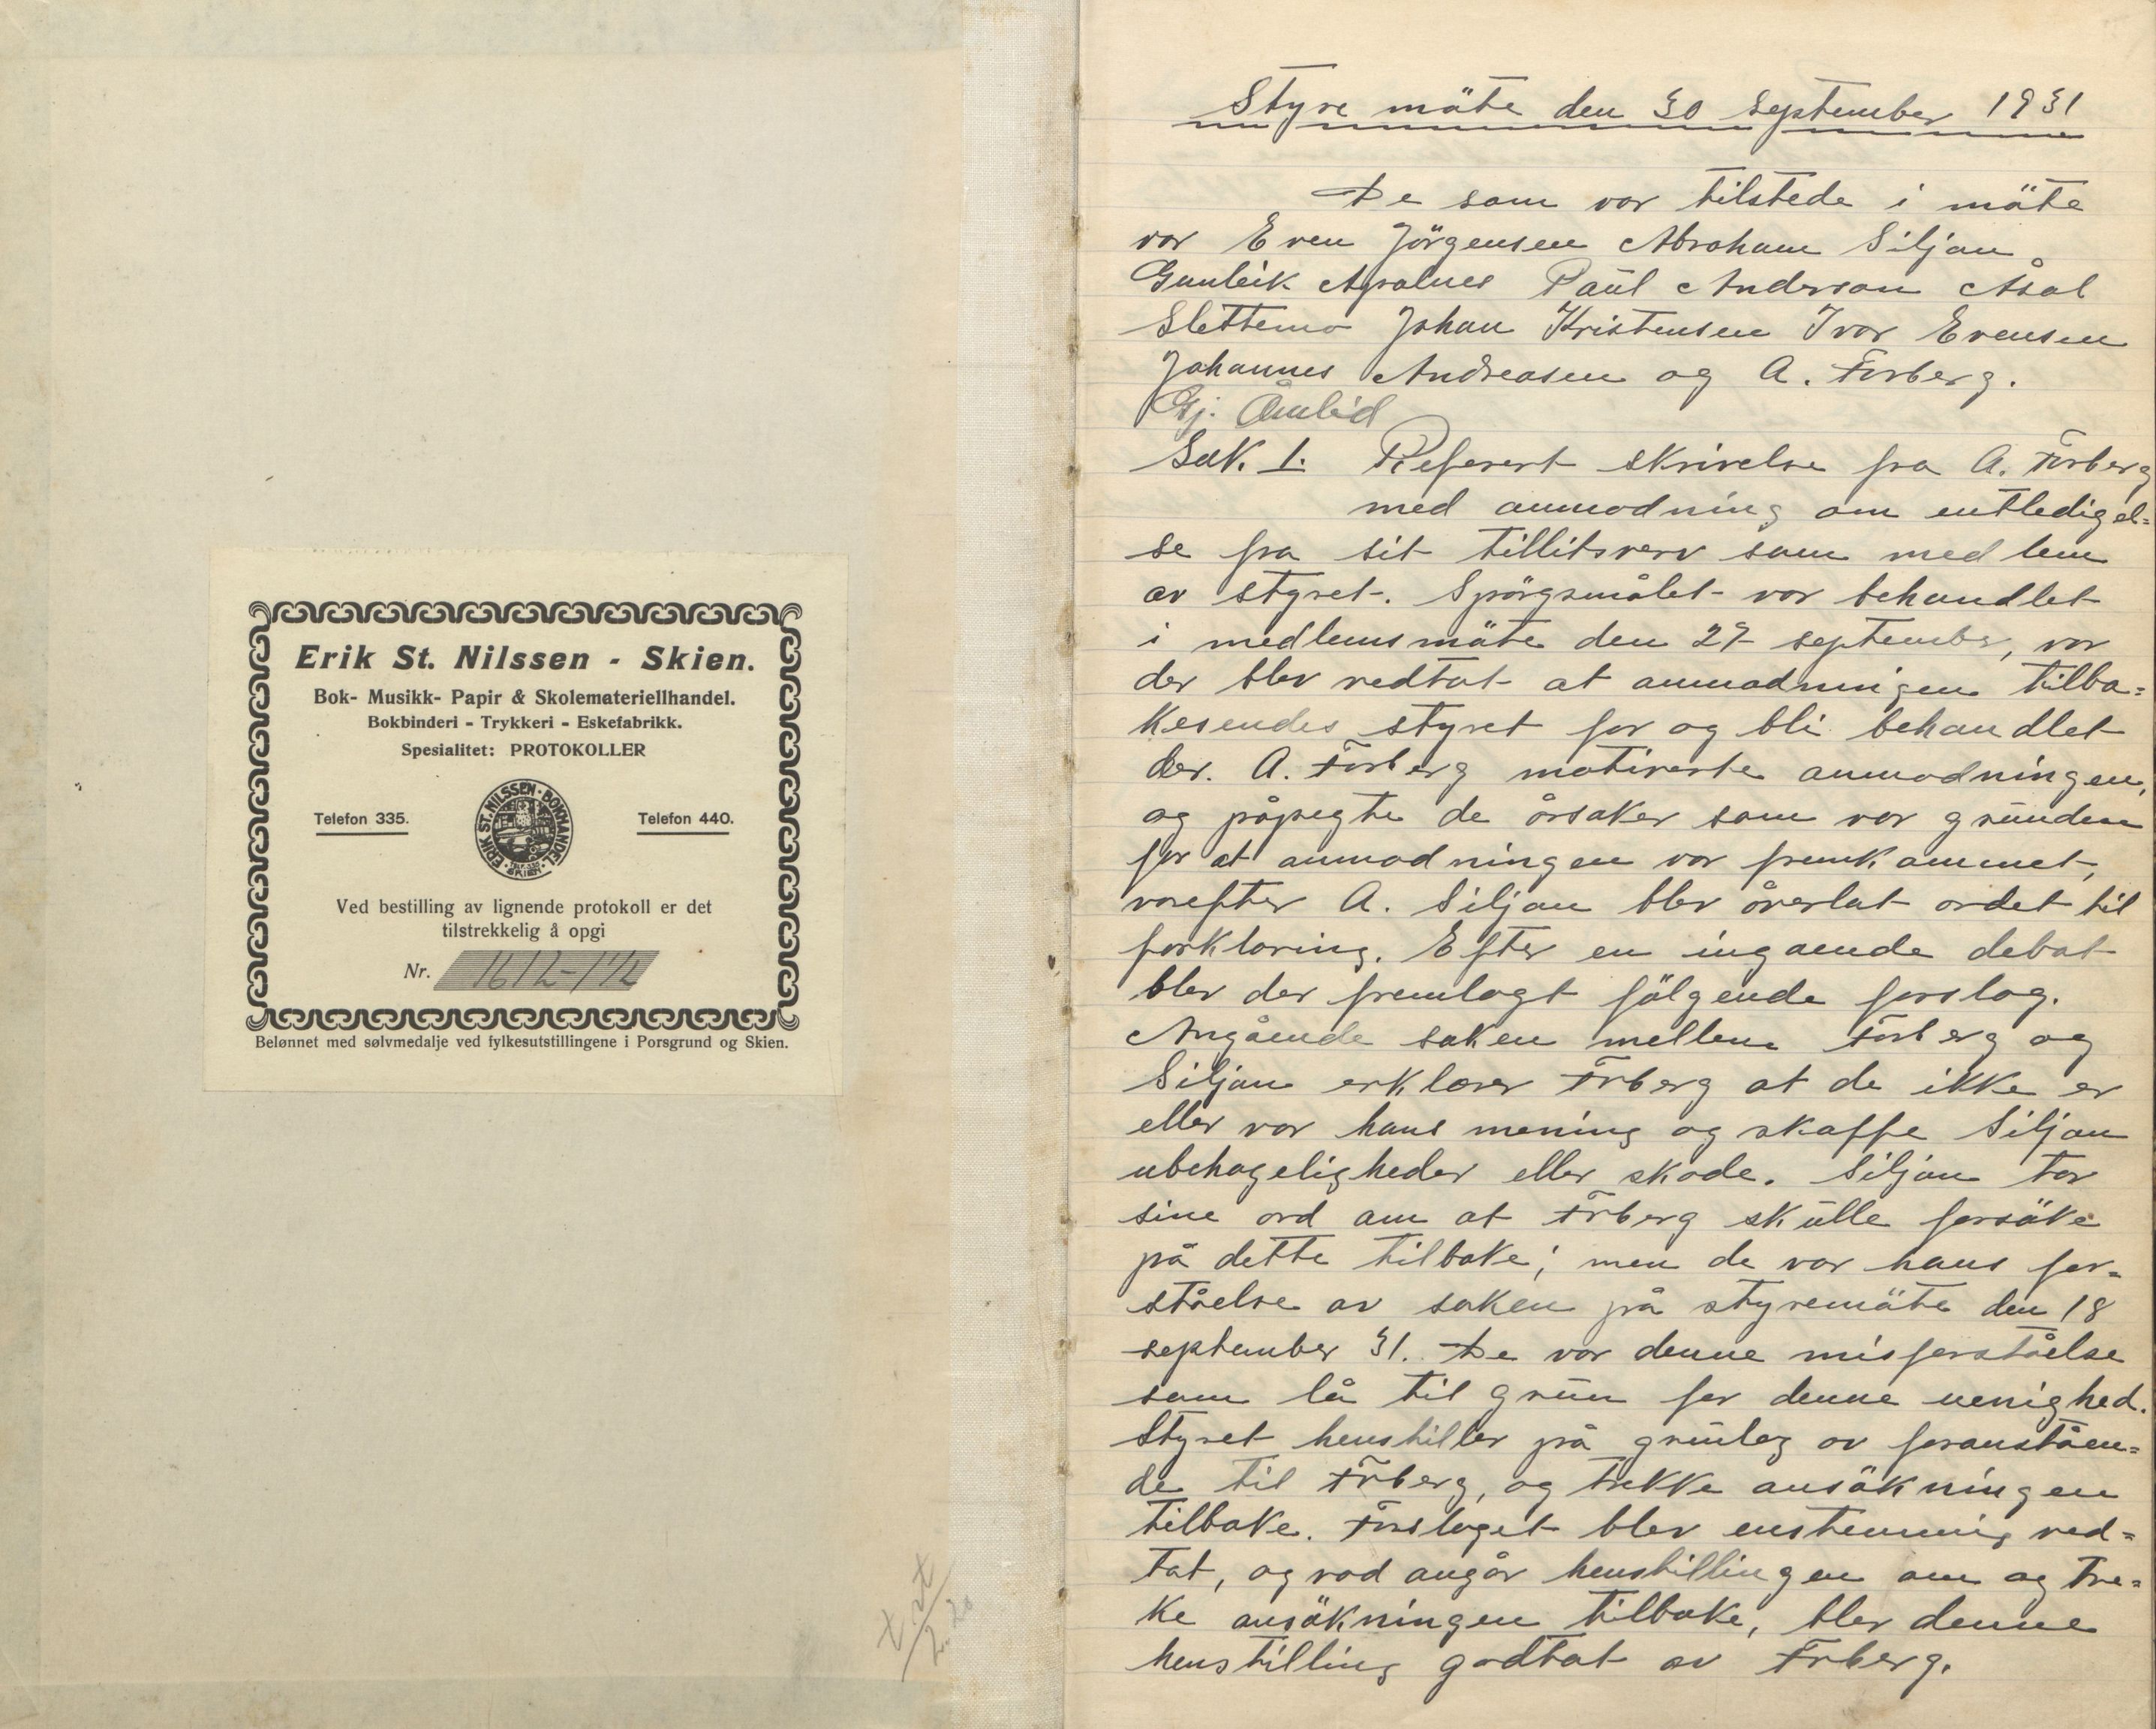 Erik St. Nilssen - Skien.
Bok- Musikk- Papir & Skolemateriellhandel.
Bokbinderi - Trykkeri - Eskefabrikk.
Spesialitet: PROTOKOLLER
ERIK ST. NILSSEN · BOKHANDEL · SKIEN ·
Telefon 335.
Telefon 440.
Ved bestilling av lignende protokoll er det
tilstrekkelig å opgi
Nr. 1612-1½
Belønnet med sølvmedalje ved fylkesutstillingene i Porsgrund og Skien.
Styre mäte den 30 September 1931
De som var tilstede i mäte
var Even Jörgensen Abraham Siljan
Gunleik Apalnes Paul Anderson Åsal
Slettemo Johan Kristensen Ivar Evensen
Johannes Andreasen og A. Forberg.
Gj. Åmlid
Sak. 1. Referert skrivelse fra A. Forberg
med anmodning om entledigel=
se fra sit tillitsverv som medlem
av styret. Spörgsmålet var behandlet
i medlemsmäte den 27 september, vor
der blev vedtat at anmodningen tilba=
kesendes styret for og bli behandlet
der. A. Forberg motiverte anmodningen,
og påpegte de årsaker som var grunden
for at anmodningen var fremkommet,
vorefter A. Siljan blev överlat ordet til
forklaring. Efter en ingaende debat
blev der fremlagt fölgende forslag.
Angående saken mellem Forberg og
Siljan erklærer Forberg at de ikke er
eller var hans mening og skaffe Siljan
ubehageligheder eller skade. Siljan tar
sine ord om at Forberg skulle forsäke
på dette tilbake; men de var hans for=
ståelse av saken på styremäte den 18
september 31. De var denne misforståelse
som lå til grun for denne uenighed.
Styret henstiller på grunlag av foranståen=
de til Forberg, og trekke ansäkningen
tilbake. Forslaget blev enstemmig ved=
tat, og vad angår henstillingen om og tre=
ke ansäkningen tilbake, blev denne
henstilling godtat av Forberg.